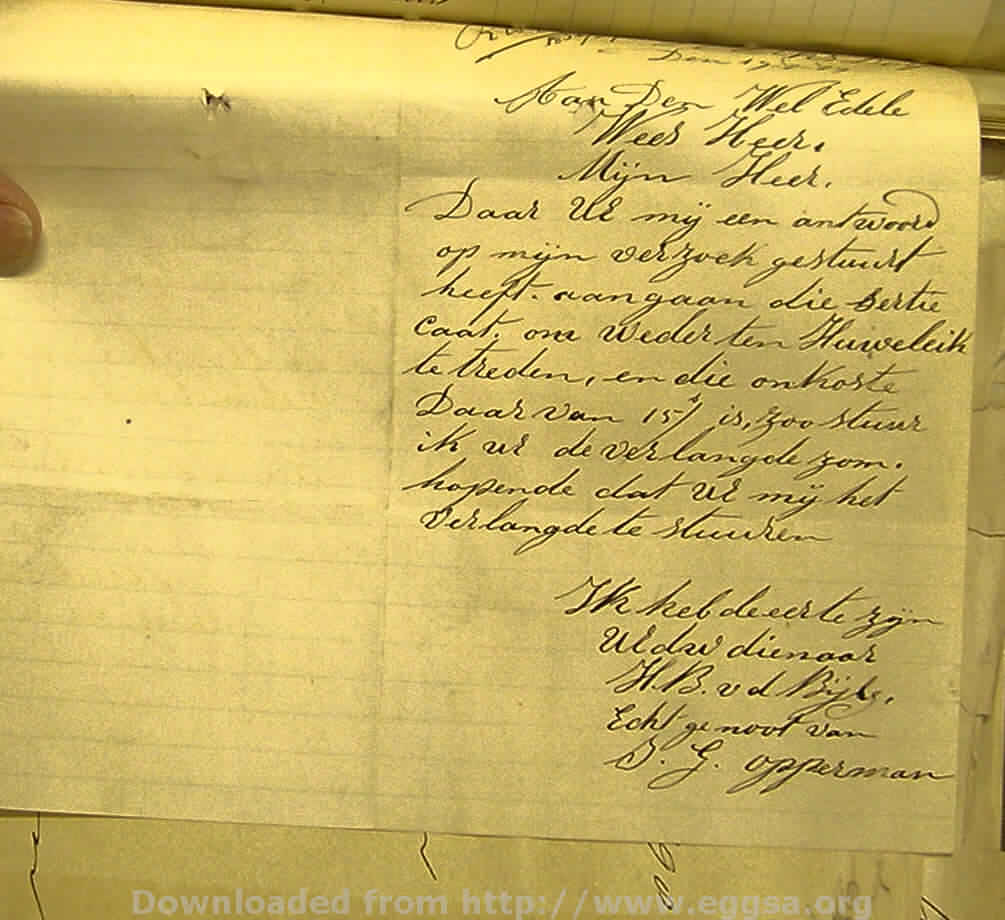 Aan Den Wel Edele
Wees Heer.
Mijn Heer.
Daar UE mij een antwoord
op mijn verzoek gestuurt
heeft. aangaan die Sertie
caat. om weder ten Huweleik
te treden, en die onkoste
Daar van 15/ is, zoo stuur
ik UE de verlangde zom.
hopende dat UE mij het
verlangde te stuuren
Ik heb de eer te zijn
UEdw dienaar
H.B. v d Bijl,
Echt genoot van
J. G. opperman
Downloaded from http://www.eggsa.org